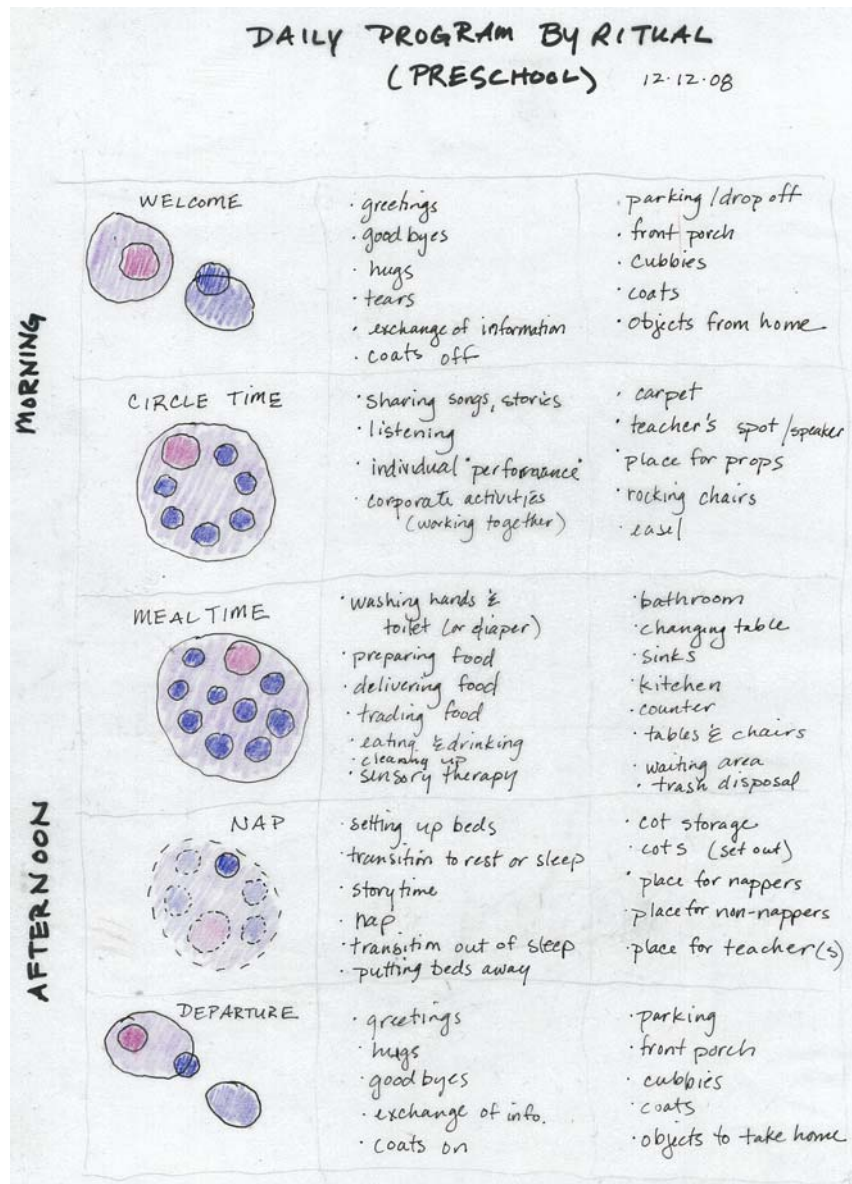 DAILY PROGRAM BY RITUAL
(PRESCHOOL) 12.12.08
MORNING
WELCOME
· greetings
· goodbyes
· hugs
· tears
· exchange of information
· coats off
· parking / drop off
· front porch
· cubbies
· coats
· objects from home
CIRCLE TIME
· sharing songs, stories
· listening
· individual "performance"
· corporate activities
(working together)
· carpet
· teacher's spot / speaker
· place for props
· rocking chairs
· easel
MEAL TIME
· washing hands &
toilet (or diaper)
· preparing food
· delivering food
· trading food
· eating & drinking
· cleaning up
· sensory therapy
· bathroom
· changing table
· sinks
· kitchen
· counter
· tables & chairs
· waiting area
· trash disposal
AFTERNOON
NAP
· setting up beds
· transition to rest or sleep
· storytime
· nap
· transition out of sleep
· putting beds away
· cot storage
· cots (set out)
· place for nappers
· place for non-nappers
· place for teacher(s)
DEPARTURE
· greetings
· hugs
· goodbyes
· exchange of info.
· coats on
· parking
· front porch
· cubbies
· coats
· objects to take home